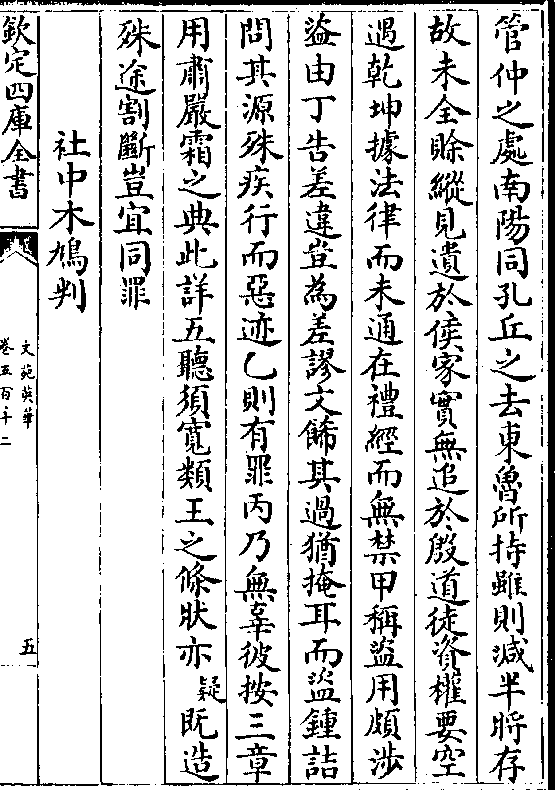 管仲之處南陽同孔丘之去東魯所持雖則減半將存
故未全賒縱見遺於侯家實無追於殷道徒資權要空
遇乾坤據法律而未通在禮經而無禁甲稱盜用頗涉
盜由丁告差違豈為差謬文餙其過猶掩耳而盜鍾詰
問其源殊疾行而惡迹乙則有罪丙乃無辜彼按三章
用肅嚴霜之典此詳五聽須寬類王之條狀亦疑既造
殊途割斷豈宜同罪
社中木鳩判
欽定四庫全書
文苑英華
卷五百三十二
五